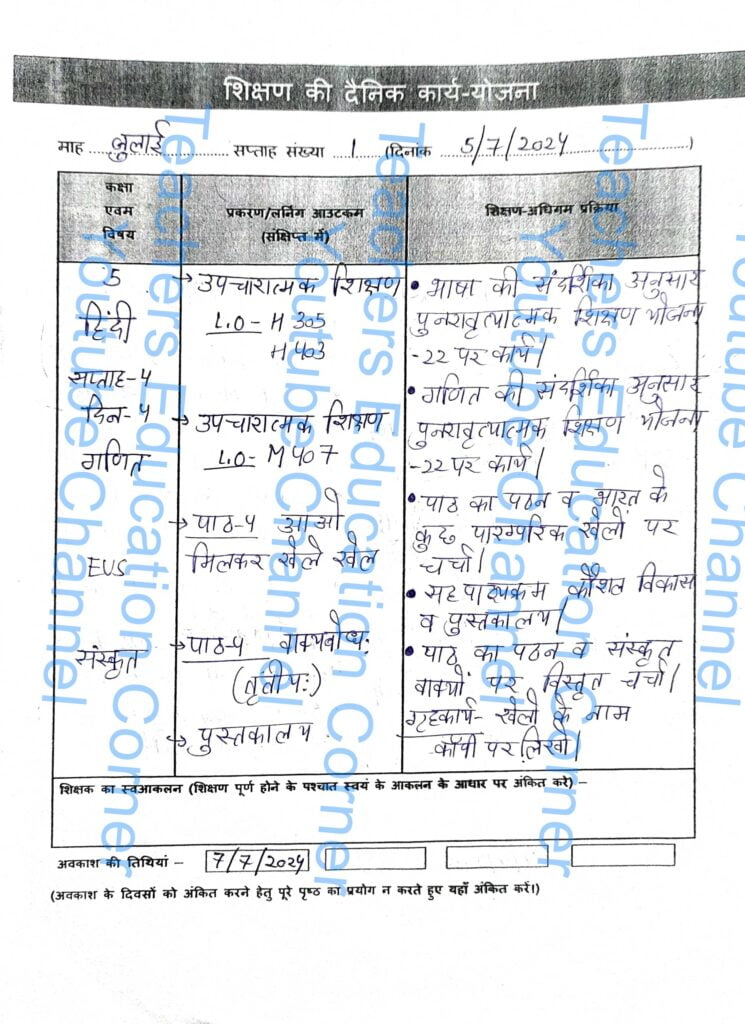 शिक्षण की दैनिक कार्य-योजना
माह जुलाई सप्ताह संख्या 1 (दिनांक 5/7/2024)
कक्षा
एवम
विषय
प्रकरण/लर्निंग आउटकम
(संक्षिप्त में)
शिक्षण-अधिगम प्रक्रिया
5
हिंदी
सप्ताह-4
दिन-4
→ उपचारात्मक शिक्षण
L.O- H 305
H 403
• भाषा की संदर्शिका अनुसार
पुनरावृत्यात्मक शिक्षण योजना
-22 पर कार्य।
गणित
→ उपचारात्मक शिक्षण
L.O- M 407
• गणित की संदर्शिका अनुसार
पुनरावृत्यात्मक शिक्षण योजना
-22 पर कार्य।
EVS
→ पाठ-4 आओ
मिलकर खेले खेल
• पाठ का पठन व भारत के
कुछ पारम्परिक खेलों पर
चर्चा।
• सह पाठ्यक्रम कौशल विकास
व पुस्तकालय।
संस्कृत
→ पाठ-4 वाक्यबोधः
(तृतीपः)
• पाठ का पठन व संस्कृत
वाक्यों पर विस्तृत चर्चा।
→ पुस्तकालय
गृहकार्य- खेलों के नाम
कॉपी पर लिखो।
शिक्षक का स्वआकलन (शिक्षण पूर्ण होने के पश्चात स्वयं के आकलन के आधार पर अंकित करे) –
अवकाश की तिथियां – 7/7/2024
(अवकाश के दिवसों को अंकित करने हेतु पूरे पृष्ठ का प्रयोग न करते हुए यहाँ अंकित करें।)
Teachers Education Corner
Youtube Channel
Teachers Education Corner
Youtube Channel
Teachers Education Corner
Youtube Channel